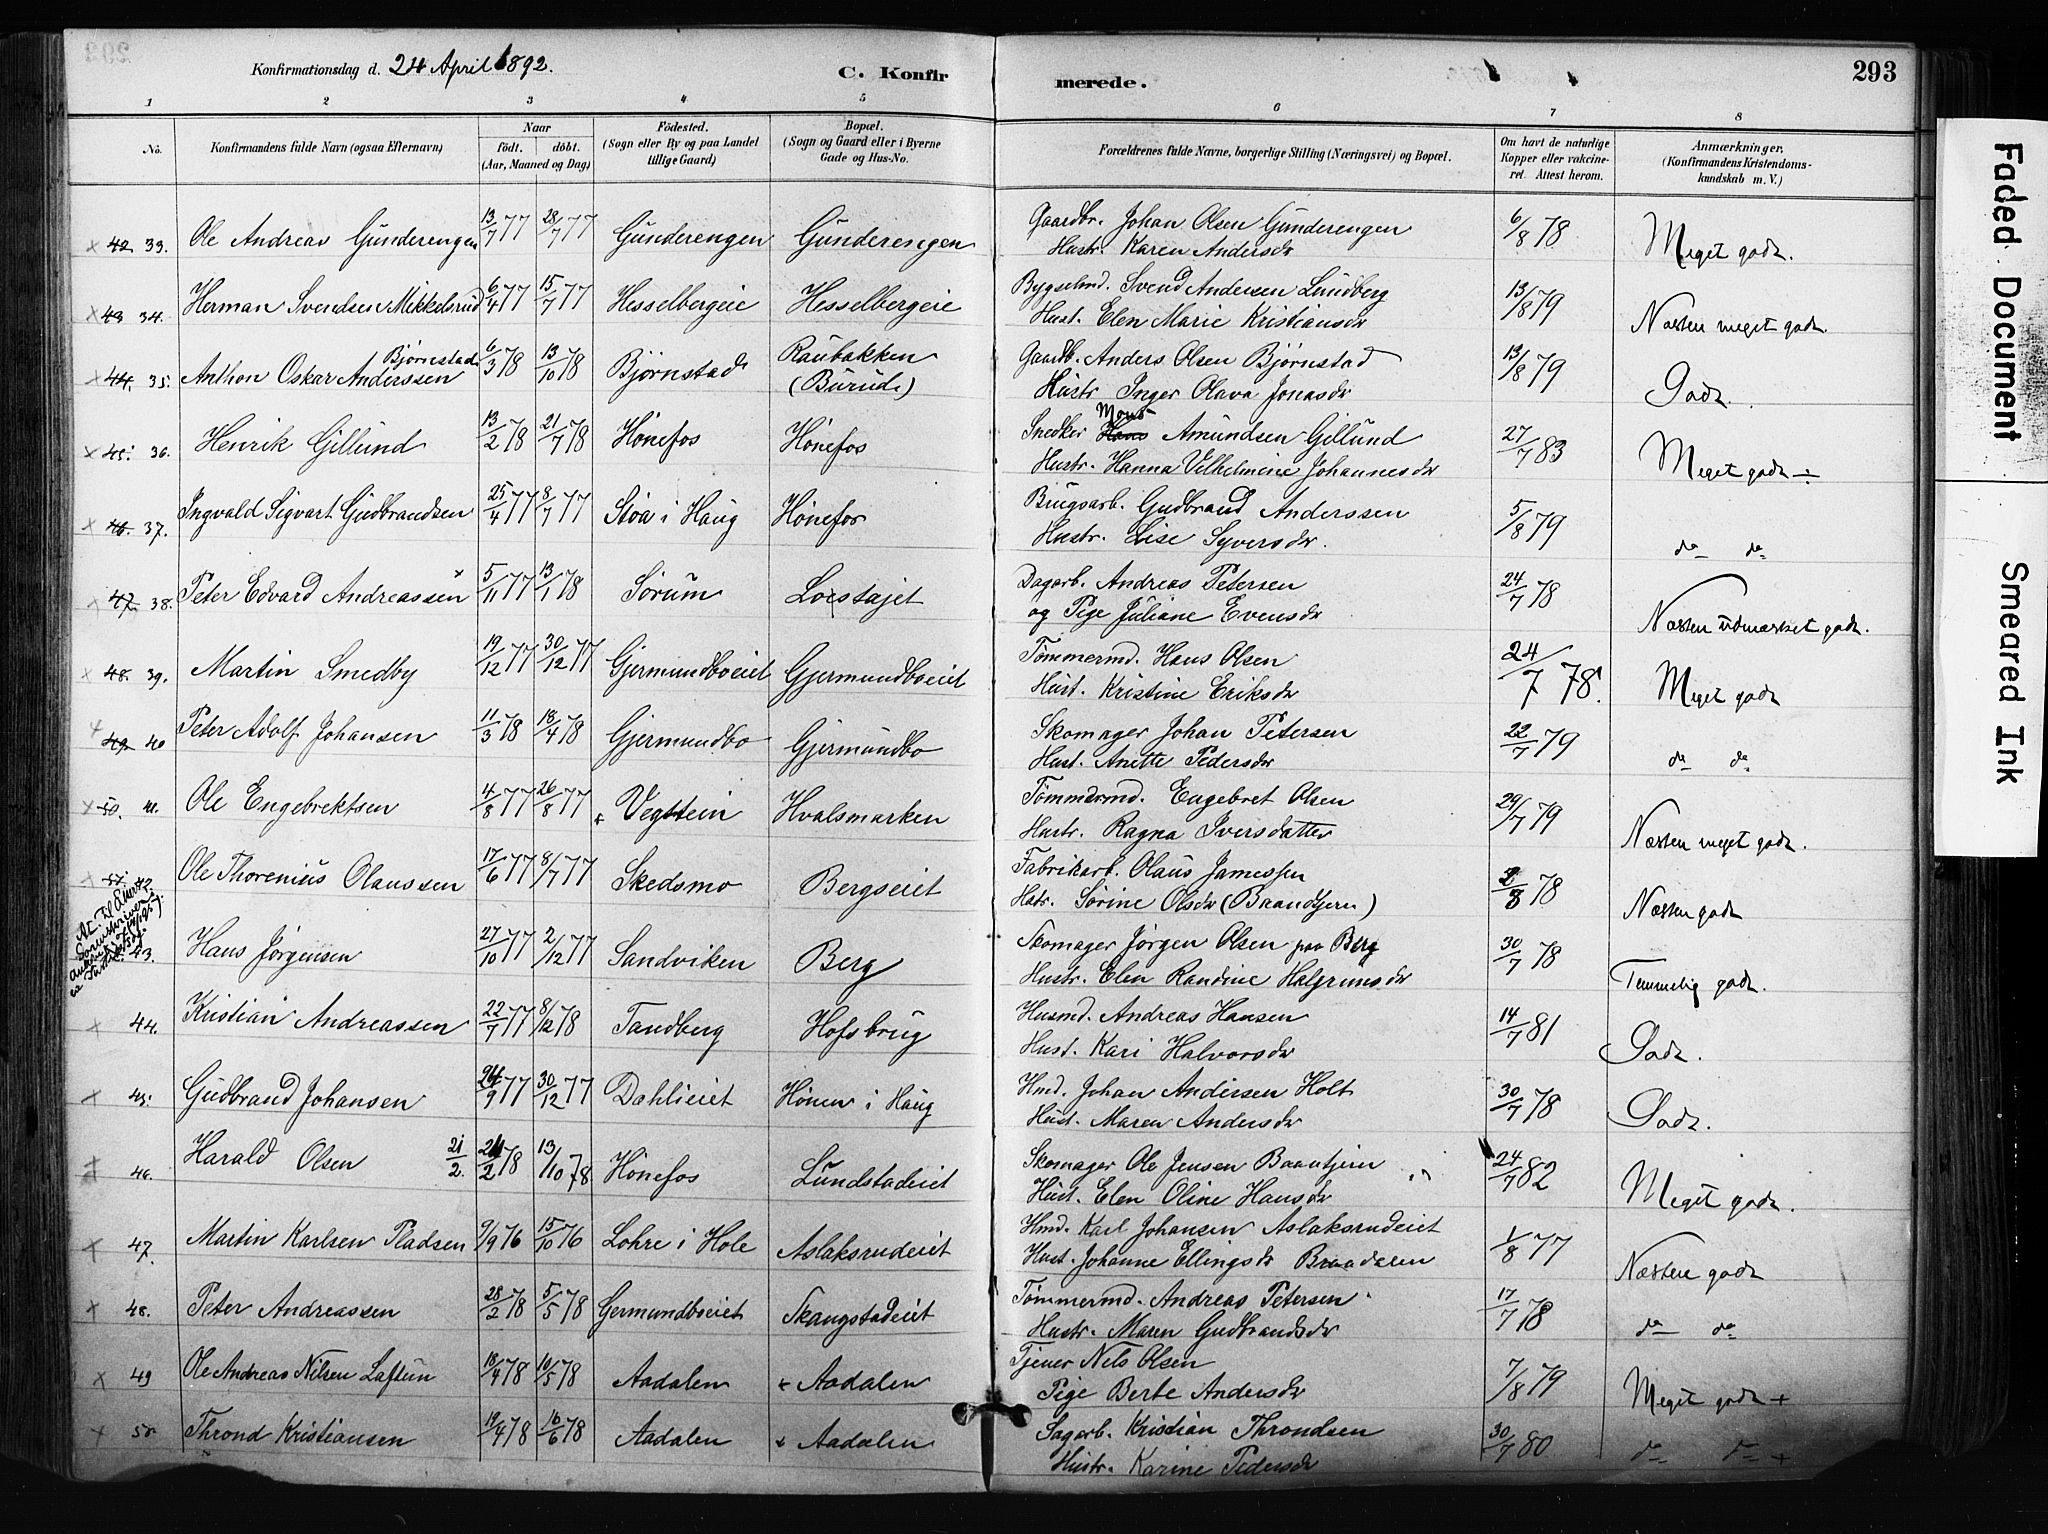 293
Konfirmationsdag d. 24 April 1892.
C. Konfirmerede.
1 2 3 4 5 6 7 8
No.
Konfirmandens fulde Navn (ogsaa Efternavn)
Naar
født. døbt.
(Aar, Maaned og Dag)
Fødested.
(Sogn eller By og paa Landet
tillige Gaard)
Bopæl.
(Sogn og Gaard eller i Byerne
Gade og Hus-No.
Forældrenes fulde Navne, borgerlige Stilling (Næringsvei) og Bopæl.
Om havt de naturlige
Kopper eller vakcine-
ret. Attest herom.
Anmærkninger,
(Konfirmandens Kristendoms-
kundskab m. V.)
× 42 33. Ole Andreas Gunderengen 13/7 77 28/7 77 Gunderengen Gunderengen Gaardbr. Johan Olsen Gunderengen 6/8 78 Meget godt.
Hustr. Karen Andersdr
× 43 34. Herman Svendsen Mikkelsrud 6/4 77 15/7 77 Hesselbergeie Hesselbergeie Bygselmd. Svend Andersen Lundberg 13/8 79 Næsten meget godt.
Hust. Elen Marie Kristiansdr
× 44. 35. Anthon Oskar Anderssen Bjørnstad 6/3 78 13/10 78 Bjørnstad Raubakken (Burud) Gaardb. Anders Olsen Bjørnstad 13/8 79 Godt.
Hustr Inger Olava Jonasdr
× 45. 36. Henrik Gillund 13/2 78 21/7 78 Hønefos Hønefos Snedker Hans Mons Amundsen Gillund 27/7 83 Meget godt ÷
Hustr. Hanna Vilhelmine Johannesdr
× 46. 37. Ingvald Sigvart Gudbrandsen 25/4 77 8/7 77 Støa i Haug Hønefos Brugsarb. Gudbrand Anderssen 5/8 79 do do
Hustr. Lise Syversdr.
× 47. 38. Peter Edvard Andreassen × 5/11 77 13/1 78 Sørum Loestajet Dagarb. Andreas Petersen 24/7 78 Næsten udmærket godt.
og Pige Juliane Evensdr
× 48. 39. Martin Smedby 19/12 77 30/12 77 Gjermundboeiet Gjermundboeiet Tømmermd. Hans Olsen 24/7 78. Meget godt
Hust. Kristine Eriksdr
49 40 Peter Adolf Johansen 11/3 78 18/4 78 Gjermundbo Gjermundbo Skomager Johan Petersen 22/7 79 do do
Hust. Anette Pedersdr
× 50. 41. Ole Engebrektsen 4/8 77 26/8 77 Vegstein Hvalsmarken Tømmermd. Engebret Olsen 29/7 79 Næsten meget godt.
Hustr. Ragna Iversdatter
× 51. 42. Ole Thorenius Olaussen 17/6 77 8/7 77 Skedsmo Bergseiet Fabrikarb. Olaus Jamessen 2/8 78 Næsten godt
Hstr. Sørine Olsdr (Baandtjern)
43. Hans Jørgensen 27/10 77 2/12 77 Sandviken Berg Skomager Jørgen Olsen paa Berg 30/7 78 Temmelig godt.
Hustr. Elen Randine Halgrimsdr
× 44. Kristian Andreassen 22/7 77 8/12 78 Tandberg Hofsbrug Husmd. Andreas Hansen 14/7 81 Godt.
Hust. Kari Halvorsdr
× 45. Gudbrand Johansen 24/9 77 30/12 77 Dahlieiet Hønen i Haug Hmd. Johan Andersen Holt 30/7 78 Godt.
Hust. Maren Andersdr
× 46. Harald Olsen 21/2. 21/2 78 13/10 78 Hønefos Lundstadeiet Skomager Ole Jensen Baantjern 24/7 82 Meget godt.
Hust. Elen Oline Hansdr
× 47. Martin Karlsen Pladsen 9/9 76 15/10 76 Lohre i Hole Aslaksrudeiet Hmd. Karl Johansen Aslaksrudeiet 1/8 77 Næsten godt
Hust. Johanne Ellingsdr Braadalen
× 48. Peter Andreassen 28/2 78 5/5 78 Germundboeiet Skaugstadeiet Tømmermd. Andreas Petersen 17/7 78 do do
Hustr. Maren Gudbrandsdr
× 49 Ole Andreas Nilsen Laftun 18/4 78 10/5 78 Aadalen × Aadalen Tjener Nels Olsen 7/8 79 Meget godt +
Pige Berte Andersdr
× 50 Thrond Kristiansen 19/4 78 16/6 78 Aadalen × Aadalen Sagarb. Kristian Throndsen 30/7 80 do do +
Hustr. Karine Pedersdr
Faded Document
Smeared Ink